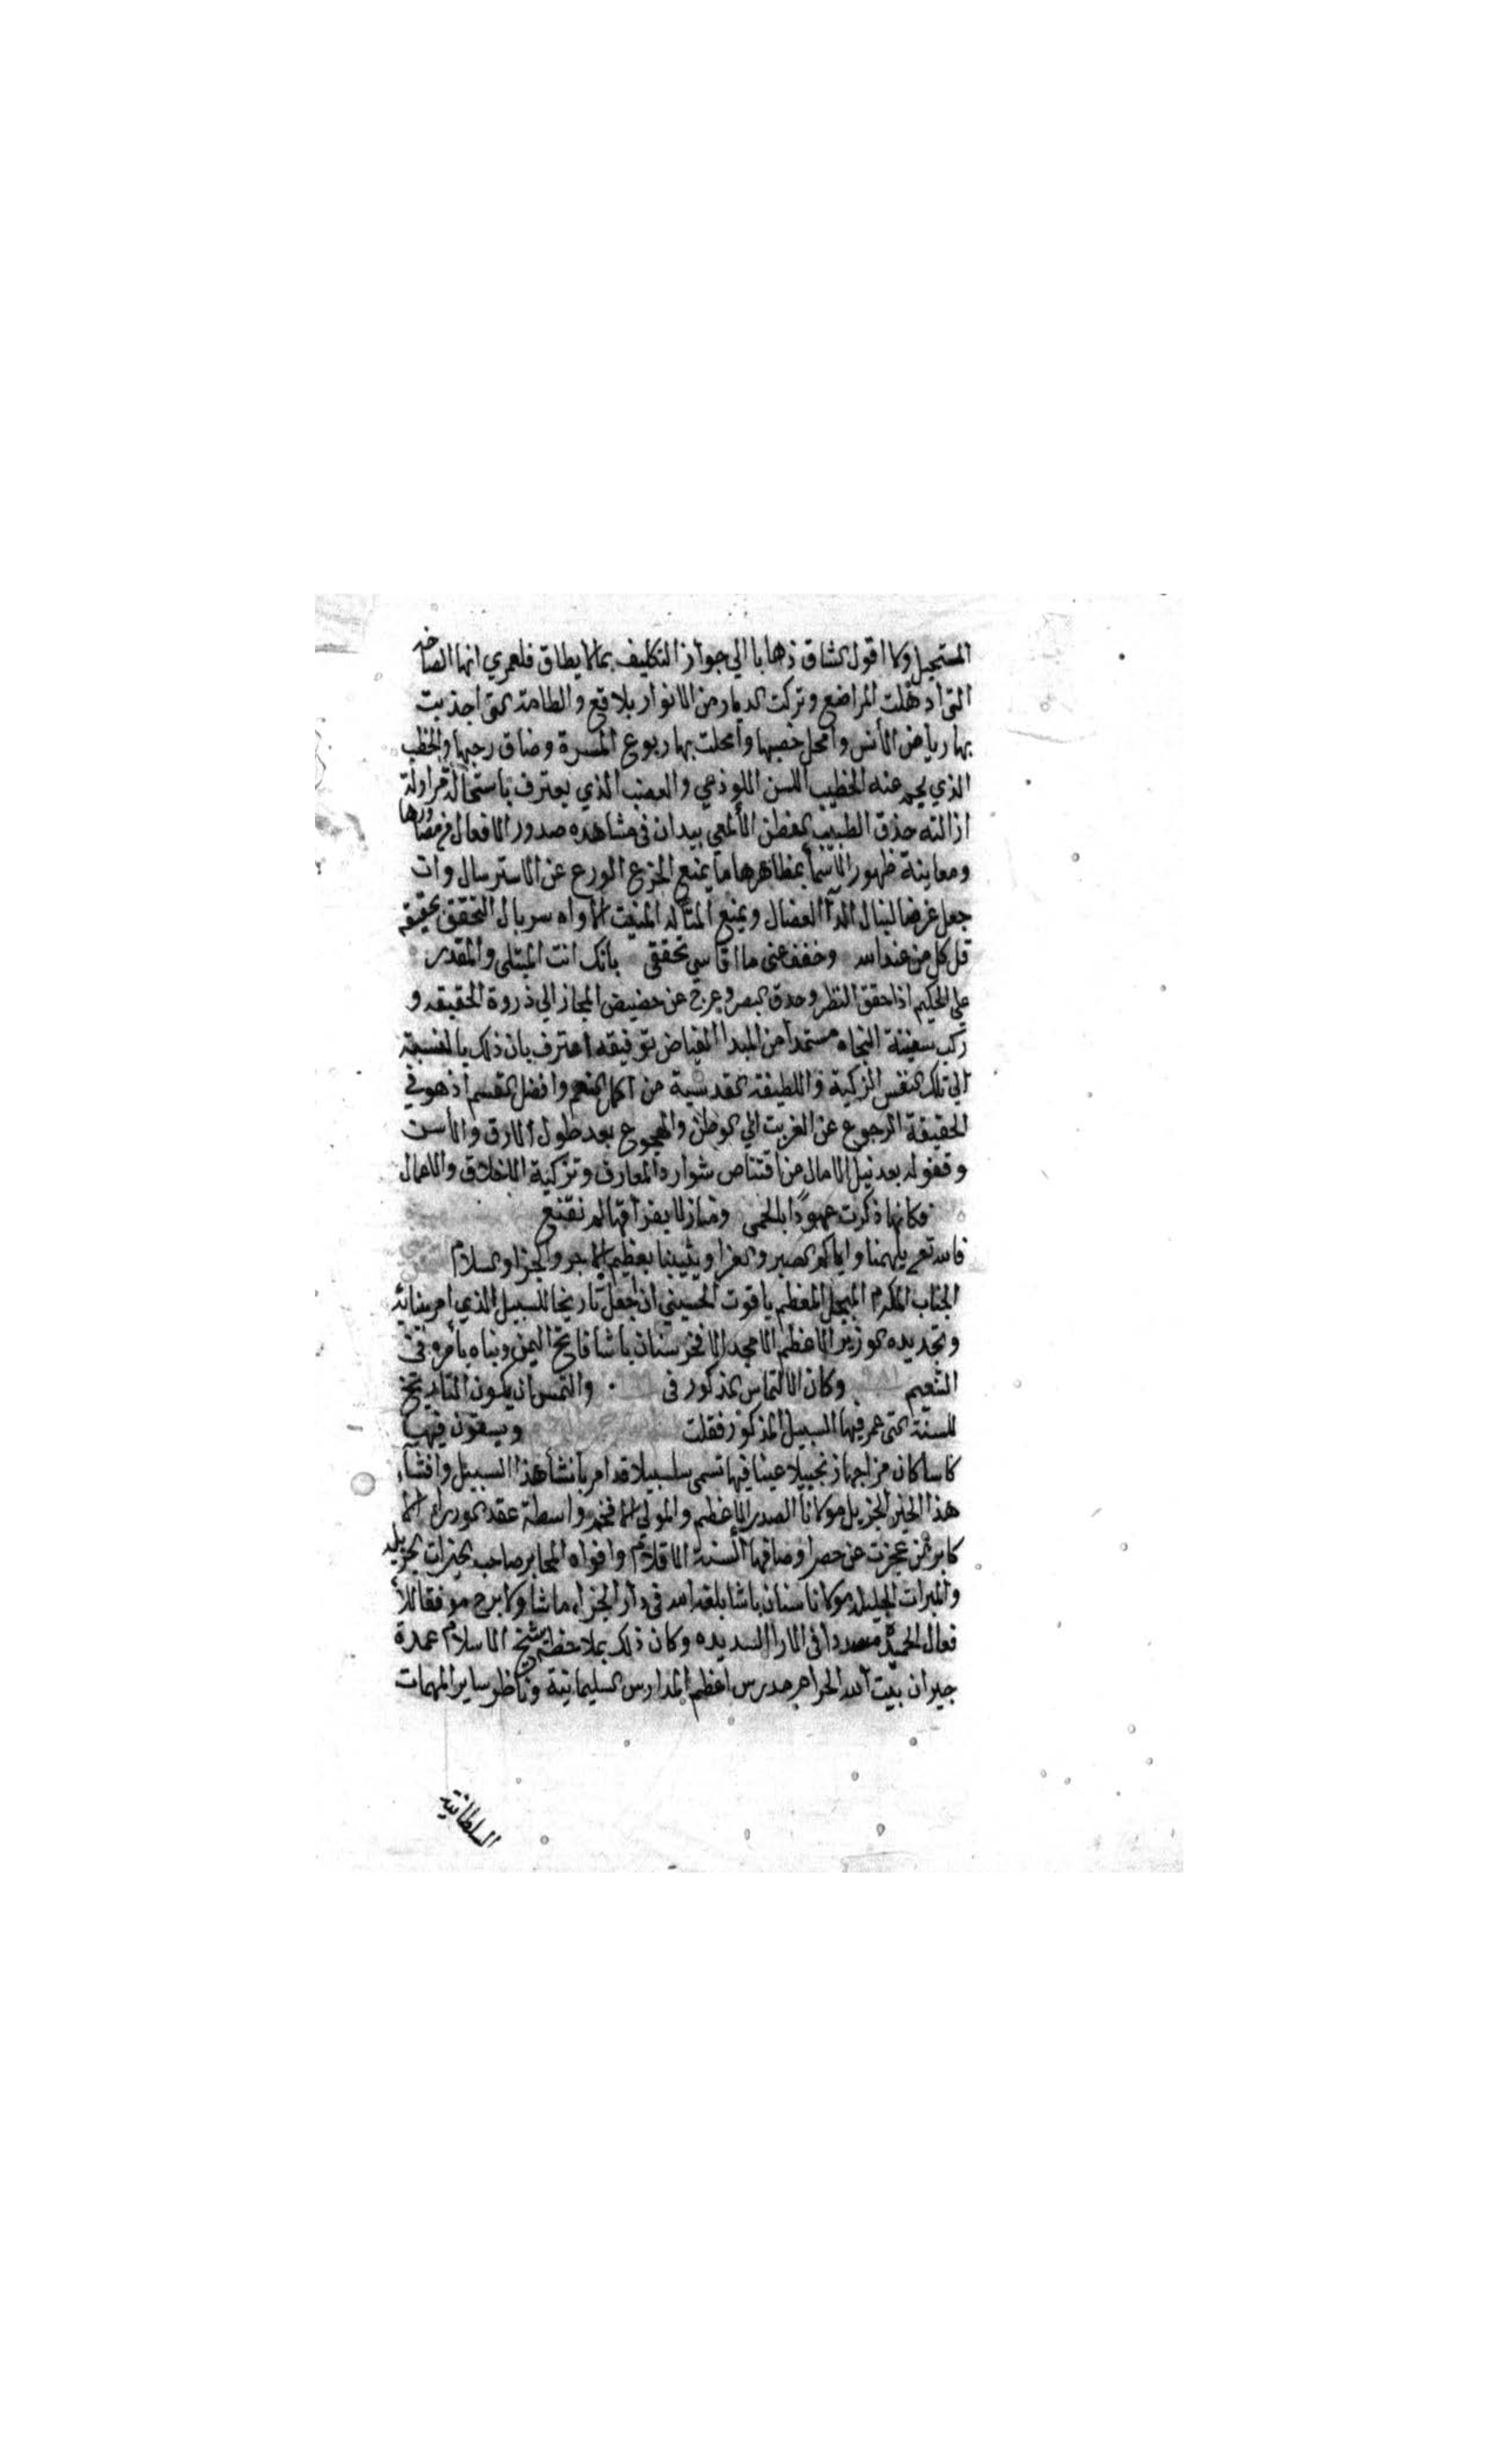 المستحيل ولا اقول الشاق ذهابا الي جواز التكليف بما لا يطاق فلعمري انها الصاخه
التي اذهلت المراضع وتركت الديار من الانوار بلاقع والطامة التي اجذبت
بها رياض الأنس وامحل خصبها وأمحلت بها ربوع المسرة وضاق رحبها والخطب
الذي يحجم عنه الخطيب اللسن اللوذعي والعضب الذي يعترف باستحالة مزاولة
ازالته حذق الطبيب الفطن الألمعي بيد ان في مشاهده صدور الافعال من مصادرها
ومعاينة ظهور الأسمأ بمظاهرها ما يمنع الجزع الورع عن الاسترسال وان
جعل غرضا لنبال الدآ العضال ويمنع المتأله المنيت الاواه سربال التحقق بحقيقه
قل كل من عند الله وخفف عني ما اقاسي تحققي بانك انت المبتلي والمقدر
علي الحكيم اذا حقق النظر وحدق البصر وعرج عن حضيض المجاز الي ذروة الحقيقه و
ركب سفينة النجاه مستمدا من المبدا الفياض توفيقه اعترف بان ذلك بالنسبة
الي تلك النفس الزكية واللطيفة القدسية من اكمل النعم وافضل القسم اذ هو في
الحقيقة الرجوع عن الغربت الي الوطن والهجوع بعد طول الارق والأسن
وقفوله بعد نيل الامال من اقتناص شوارد المعارف وتزكية الاخلاق والاعمال
فكانها ذكرت عهودًا بالحمى ومنازلا بفراقها لم تقنع
فالله تعالى يلهمنا واياكم الصبر والعزا ويثيبنا بعظيم الاجر والجزا والسلام
الجناب المكرم المبجل المعظم ياقوت الحسيني ان اجعل تاريخا للسبيل الذي امر ببنائه
وتجديده الوزير الاعظم الامجد الافخر سنان باشا فاتح اليمن وبناه بأمره في
التنعيم ٩٨١ وكان الالتماس المذكور في والتمس ان يكون التاريخ
للسنة التي عمر فيها السبيل المذكور فقلت ويسقون فيها
كاسا كان مزاجها زنجبيلا عينا فيها تسمى سلسبيلا قد امر بانشأ هذا السبيل وافشآ
هذا الخير الجزيل مولانا الصدر الاعظم والمولي الافخم واسطة عقد الوزراء الا
كابر من عجزت عن حصر اوصافها ألسنة الاقلام وافواه المحابر صاحب الخيرات الجزيله
والمبرات الجليله مولانا سنان باشا بلغه الله في دار الجزاء ما شا ولا برح موفقا للأ
فعال الحميدة مسددا في الارا السديده وكان ذلك بملاحظة شيخ الاسلام عمدة
جيران بيت الله الحرام مدرس اعظم المدارس السليمانية وناظر ساير المهمات
السلطانية